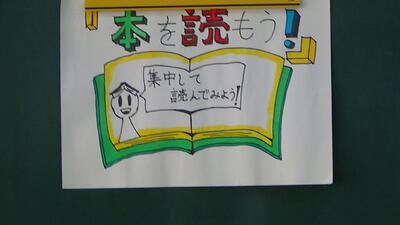 本を読もう!
集中して
読んでみよう!